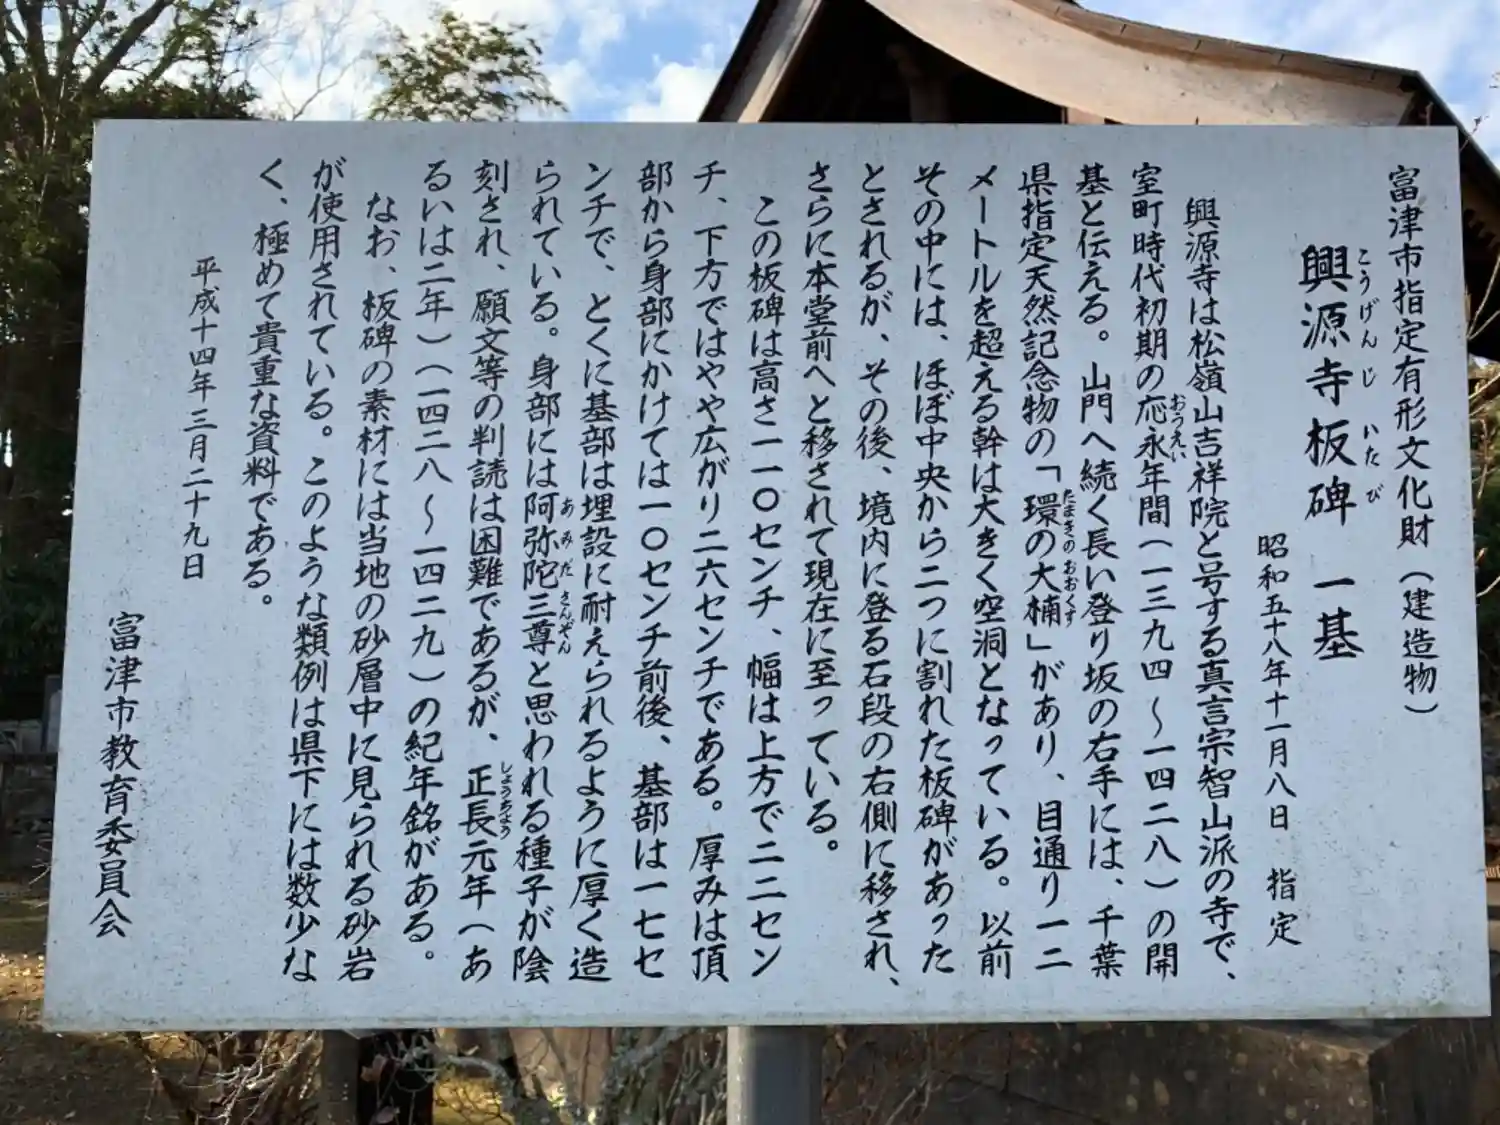 富津市指定有形文化財（建造物）
興源寺板碑　一基
こうげんじ　いたび
昭和五十八年十一月八日　指定
興源寺は松嶺山吉祥院と号する真言宗智山派の寺で、
室町時代初期の応永年間（一三九四～一四二八）の開
おうえい
基と伝える。山門へ続く長い登り坂の右手には、千葉
県指定天然記念物の「環の大楠」があり、目通り一二
たまきのおおくす
メートルを超える幹は大きく空洞となっている。以前
その中には、ほぼ中央から二つに割れた板碑があった
とされるが、その後、境内に登る石段の右側に移され、
さらに本堂前へと移されて現在に至っている。
この板碑は高さ一一〇センチ、幅は上方で二二セン
チ、下方ではやや広がり二六センチである。厚みは頂
部から身部にかけては一〇センチ前後、基部は一七セ
ンチで、とくに基部は埋設に耐えられるように厚く造
られている。身部には阿弥陀三尊と思われる種子が陰
あみださんぞん
刻され、願文等の判読は困難であるが、正長元年（あ
しょうちょう
るいは二年）（一四二八～一四二九）の紀年銘がある。
なお、板碑の素材には当地の砂層中に見られる砂岩
が使用されている。このような類例は県下には数少な
く、極めて貴重な資料である。
平成十四年三月二十九日
富津市教育委員会